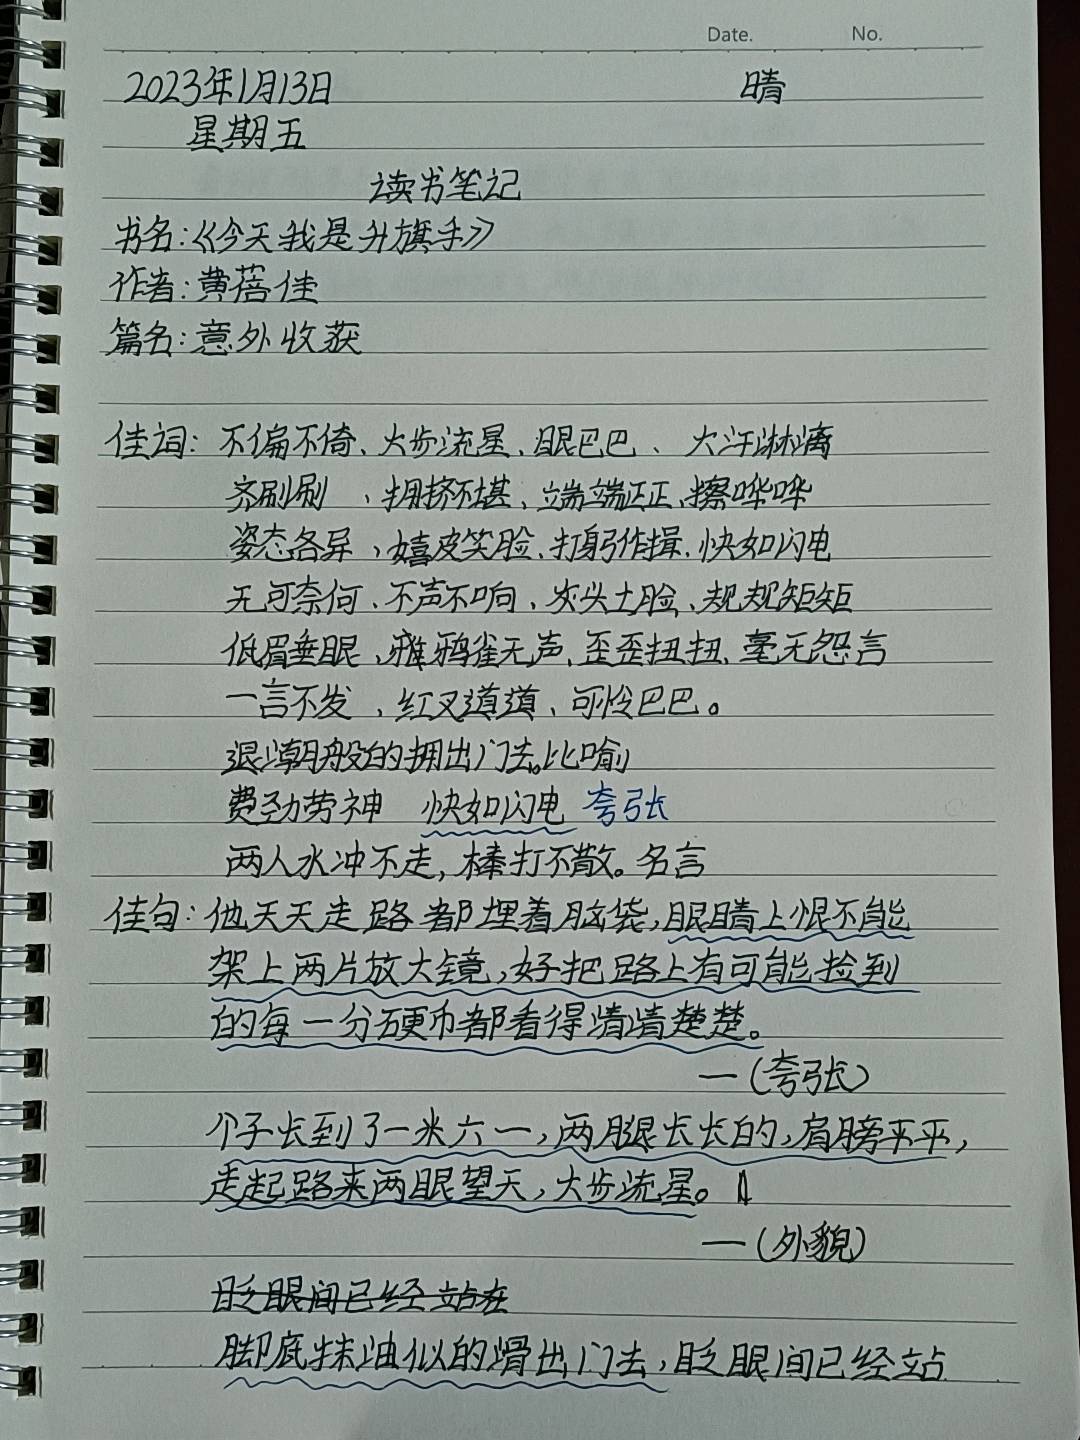 Date. No.
2023年1月13日 晴
星期五
读书笔记
书名:《今天我是升旗手》
作者:黄蓓佳
篇名:意外收获
佳词:不偏不倚、大步流星、眼巴巴、大汗淋漓
齐刷刷、拥挤不堪、端端正正、擦哗哗
姿态各异,嬉皮笑脸、打躬作揖、快如闪电
无可奈何、不声不响、灰头土脸、规规矩矩
低眉垂眼、雅鸦雀无声、歪歪扭扭、毫无怨言
一言不发、红叉道道、可怜巴巴。
退潮般的拥出门去。比喻
费劲劳神 快如闪电 夸张
两人水冲不走,棒打不散。名言
佳句:他天天走路都埋着脑袋,眼睛上恨不能
架上两片放大镜,好把路上有可能捡到
的每一分硬币都看得清清楚楚。
—(夸张)
个子长到了一米六一,两腿长长的,肩膀平平,
走起路来两眼望天,大步流星。
—(外貌)
眨眼间已经站在
脚底抹油似的滑出门去,眨眼间已经站